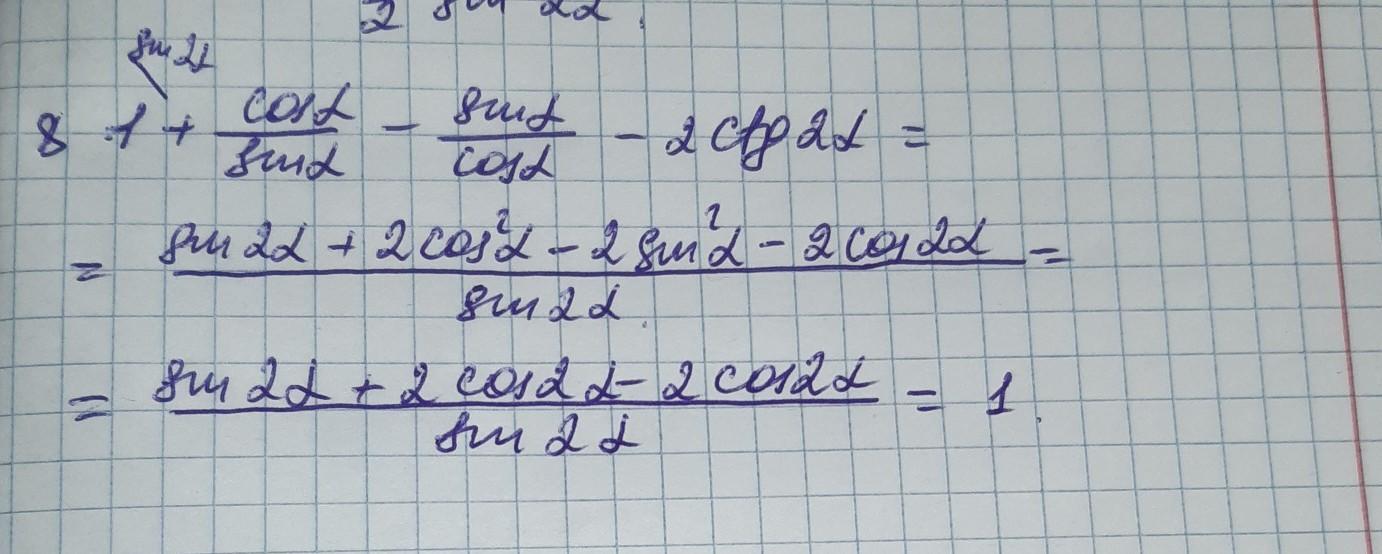 2 sin 2α.
sin 2α
8 1 + cosα/sinα - sinα/cosα - 2 ctg 2α =
= (sin 2α + 2cos²α - 2sin²α - 2cos2α)/(sin 2α) =
= (sin 2α + 2cos2α - 2cos2α)/(sin 2α) = 1.